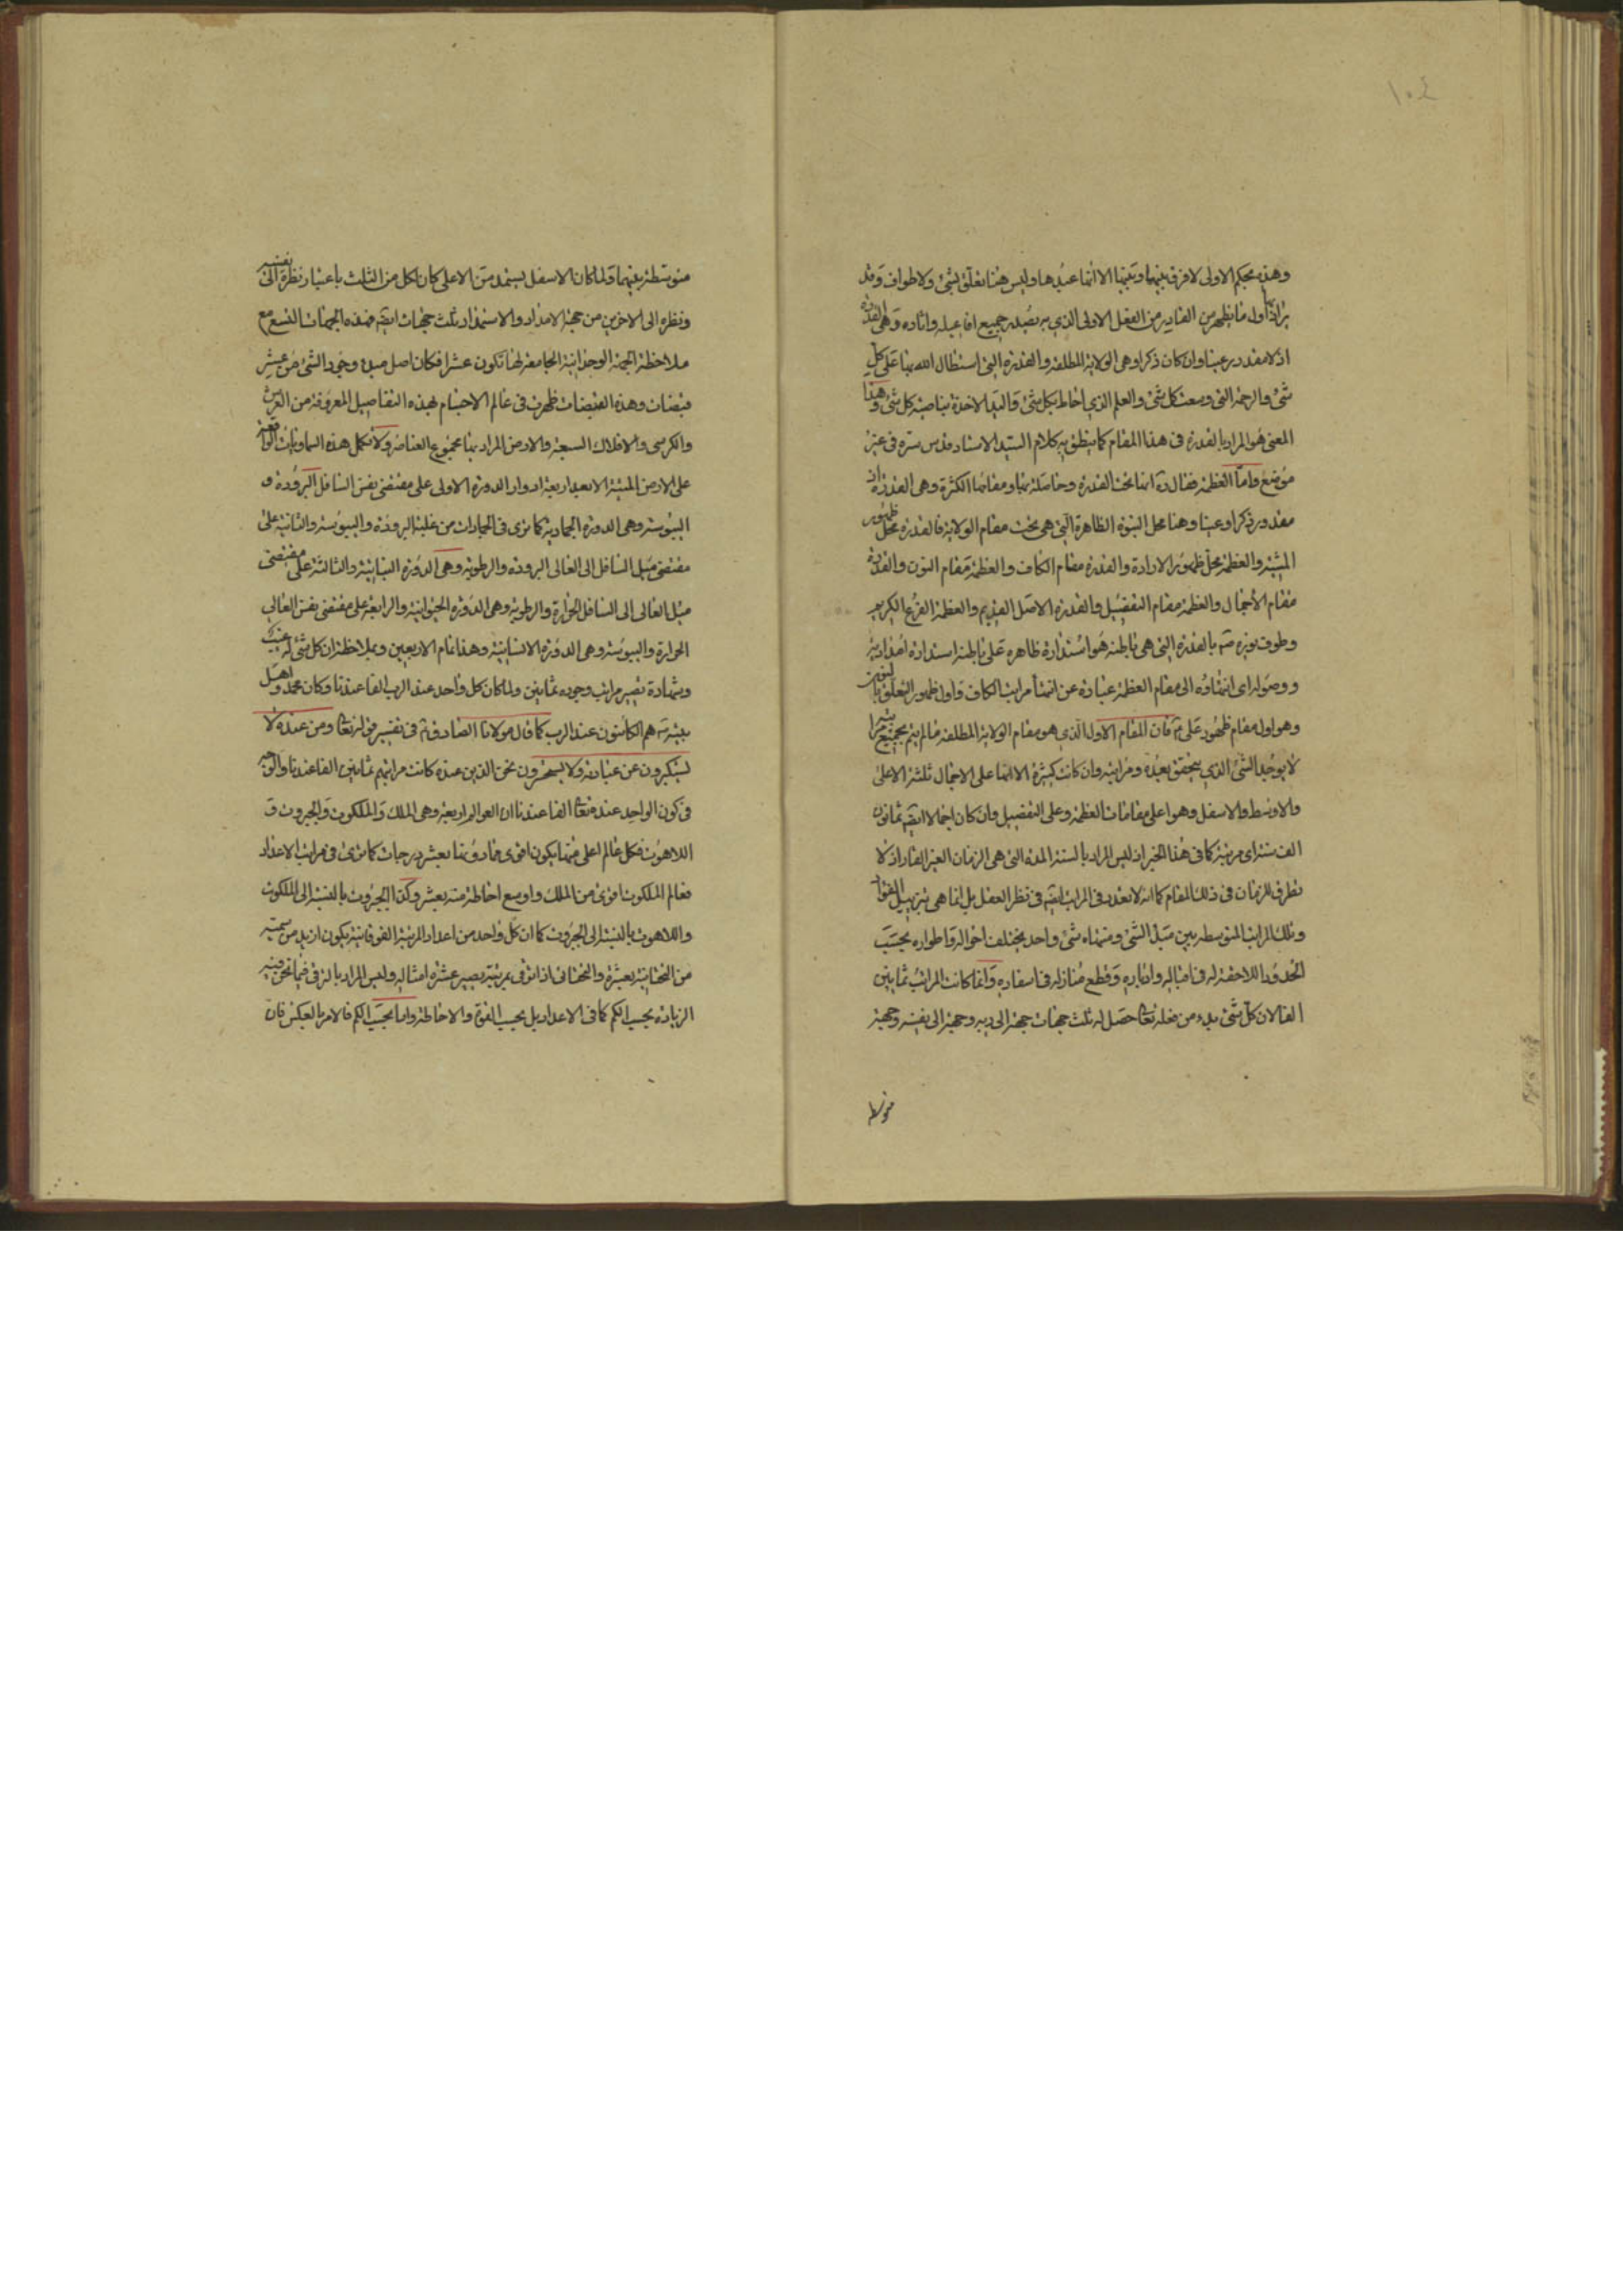 ١٠٤
وهذه بحكم الاولى لا فرق بينها وبينها الا انها عبدها وليس هنا تعلق بشئ ولا طواف وقد
يراد اول ما يظهر من القادر من الفعل الاولى الذي به تصدر جميع افاعيله واثاره وهى القدرة
اذ لا مقدور عينا وان كان ذكرا وهى الولاية المطلقة والقدرة التى استطال الله بها على كل
شئ والرحمة التى وسعت كل شئ والعلم الذي احاط بكل شئ واليد الاخذة بناصية كل شئ وهذا
المعنى هو المراد بالقدرة فى هذا المقام كما ينطق به كلام السيد الاستاد قدس سره فى غير
موضع واما العظمة فقال انها تحت القدرة وحاصلة بها ومقامها الكثرة وهى القدرة اذ
مقدور ذكرا وعينا وهنا محل النبوة الظاهرة التى هى تحت مقام الولاية فالقدرة محل ظهور
المشية والعظمة محل ظهور الارادة والقدرة مقام الكاف والعظمة مقام النون والقدرة
مقام الاجمال والعظمة مقام التفصيل والقدرة الاصل القديم والعظمة الفرع الكريم
وطوف نوره ص بالقدرة التى هى باطنه هو استدارة ظاهره على باطنه استدارة امدادية
ووصوله اى انتهاؤه الى مقام العظمة عبارة عن انتهاء مراتب الكاف واول ظهور التعلق بالنون
وهو اول مقام ظهور على ع فان المقام الاول الذي هو مقام الولاية المطلقة ما لم يتم بجميع مراتبه
لا يوجد الشئ الذي يتحقق بعده ومراتبه وان كانت كثيرة الا انها على الاجمال ثلثة الاعلى
والاوسط والاسفل وهو اعلى مقامات العظمة وعلى التفصيل وان كان اجمالا ايضا ثمانون
الف سنة اى مرتبة كما فى هذا الخبر اذ ليس المراد بالسنة المدة التى هى الزمان الغير القار اذ لا
تطرق للزمان فى ذلك المقام كما انه لا تعدد فى المراتب ايضا فى نظر العقل بل انما هى بترتيب الفؤاد
وتلك المراتب المتوسطة بين مبدأ الشئ ومنتهاه شئ واحد يختلف احواله واطواره بحسب
الحدود اللاحقة له فى اقباله وادباره وقطع منازله فى اسفاره وانما كانت المراتب ثمانين
الفا لان كل شئ بدء من فعله تعالى حصل له ثلث جهات جهة الى ربه وجهة الى نفسه وجهة
متوسطة
متوسطة بينهما ولما كان الاسفل يستمد من الاعلى كان لكل من الثلث باعتبار نظره الى نفسه
ونظره الى الاخرين من جهة الامداد والاستمداد ثلث جهات ايضا فهذه الجهات التسع مع
ملاحظة الجهة الوحدانية الجامعة لها تكون عشرا فكان اصل مبدء وجود الشئ من عشر
قبضات وهذه القبضات ظهرت فى عالم الاجسام بهذه التفاصيل المعروفة من العرش
والكرسى والافلاك السبعة والارض المراد بها مجموع العناصر ولا تكمل هذه السماويات الواقعة
على الارض الميتة الا بعد اربعة ادوار الدورة الاولى على مقتضى نفس السافل البرودة و
اليبوسة وهى الدورة الجمادية كما ترى فى الجمادات من غلبة البرودة واليبوسة والثانية على
مقتضى ميل السافل الى العالى البرودة والرطوبة وهى الدورة النباتية والثالثة على مقتضى
ميل العالى الى السافل الحرارة والرطوبة وهى الدورة الحيوانية والرابعة على مقتضى نفس العالى
الحرارة واليبوسة وهى الدورة الانسانية وهذا تمام الاربعين وبملاحظة ان كل شئ له غيب
وشهادة تصير مراتب وجوده ثمانين ولما كان كل واحد عند الرب الفا عندنا وكان محمد واهل
بيته هم الكائنون عند الرب كما قال مولانا الصادق ع فى تفسير قوله تعالى ومن عنده لا
يستكبرون عن عبادته ولا يستحسرون نحن الذين عنده كانت مراتبهم ثمانين الفا عندنا والوجه
فى كون الواحد عنده تعالى الفا عندنا ان العوالم اربعة وهى الملك والملكوت والجبروت و
اللاهوت فكل عالم اعلى منها يكون اقوى مما دونها بعشر درجات كما ترى فى مراتب الاعداد
فعالم الملكوت اقوى من الملك واوسع احاطة منه بعشر وكذا الجبروت بالنسبة الى الملكوت
واللاهوت بالنسبة الى الجبروت كما ان كل واحد من اعداد المرتبة الفوقانية يكون ازيد من سميه
من التحتانية بعشرة والتحتانى اذا ترقى بمرتبة يصير عشرة امثاله وليس المراد بالترقى فيما نحن فيه
الزيادة بحسب الكم كما فى الاعداد بل بحسب القوة والاحاطة واما بحسب الكم فالامر بالعكس فان